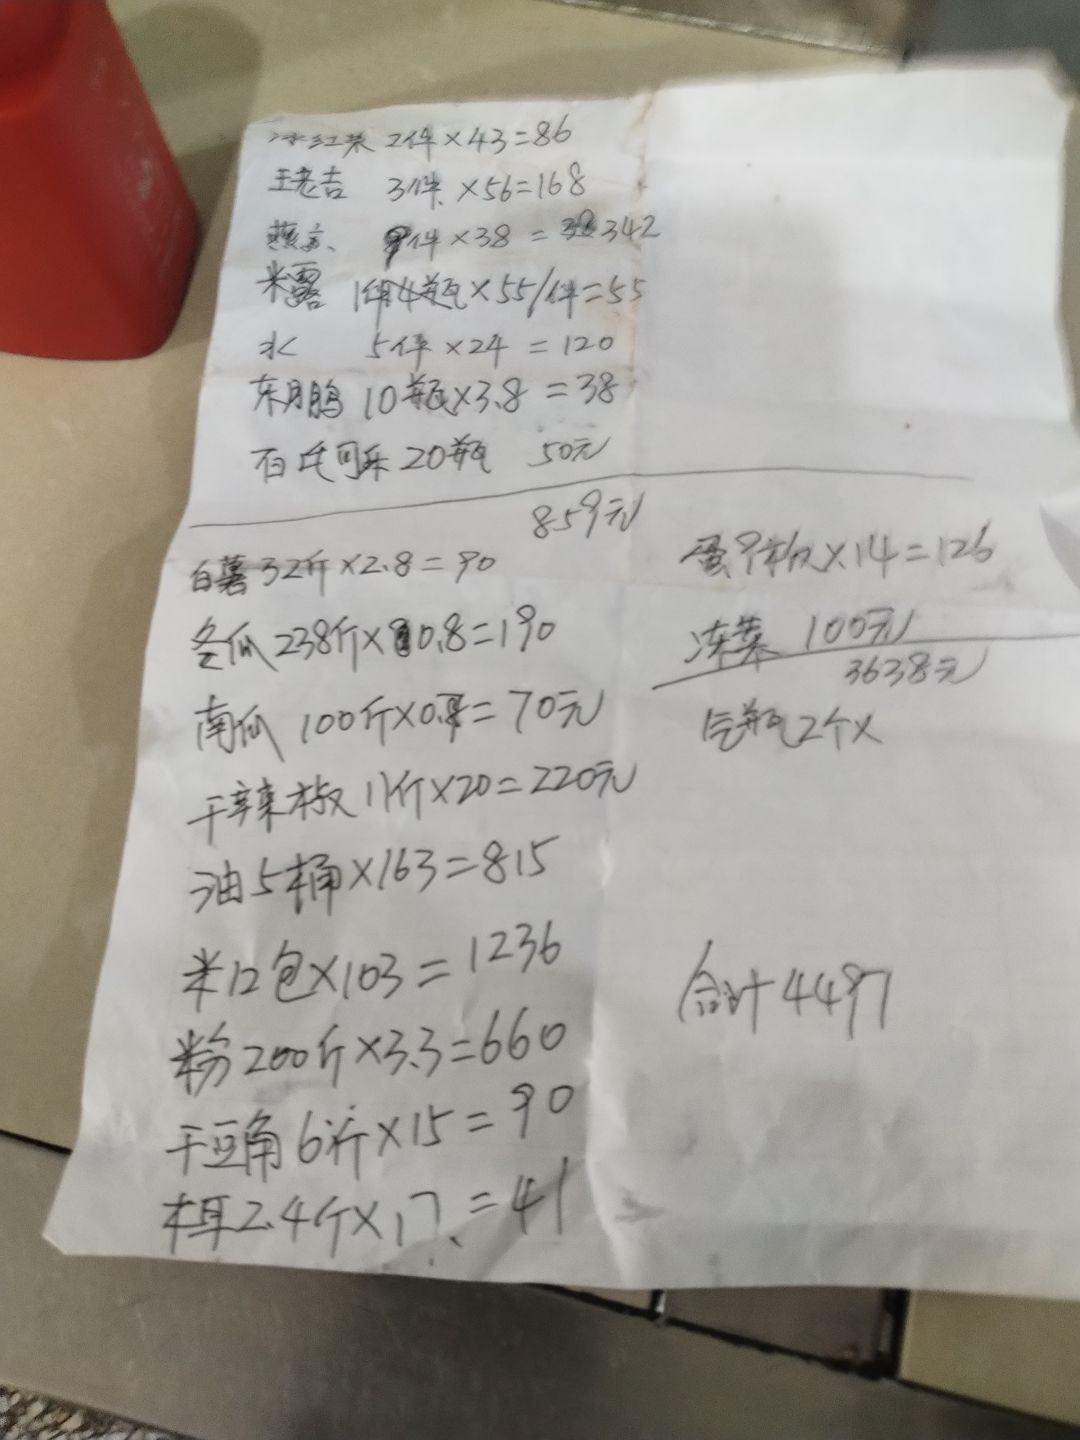 冰红茶 2件×43=86
王老吉 3件×56=168
燕京、 9件×38=342
米露 1件4瓶×55/件=55
水 5件×24=120
东鹏 10瓶×3.8=38
百氏可乐 20瓶 50元
859元
白薯32斤×2.8=90
冬瓜238斤×0.8=190
南瓜 100斤×0.7=70元
干辣椒 11斤×20=220元
油5桶×163=815
米12包×103=1236
粉200斤×3.3=660
干豆角6斤×15=90
木耳2.4斤×17.=41
蛋9板×14=126
冻菜 100元
3638元
气瓶2个×
合计4497